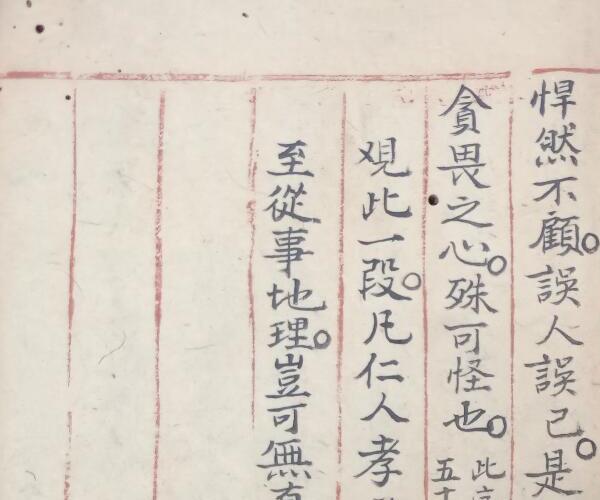 悍然不顧。誤人誤己。是
貪畏之心。殊可怪也。此
五十
观此一段。凡仁人孝
至從事地理。豈可無